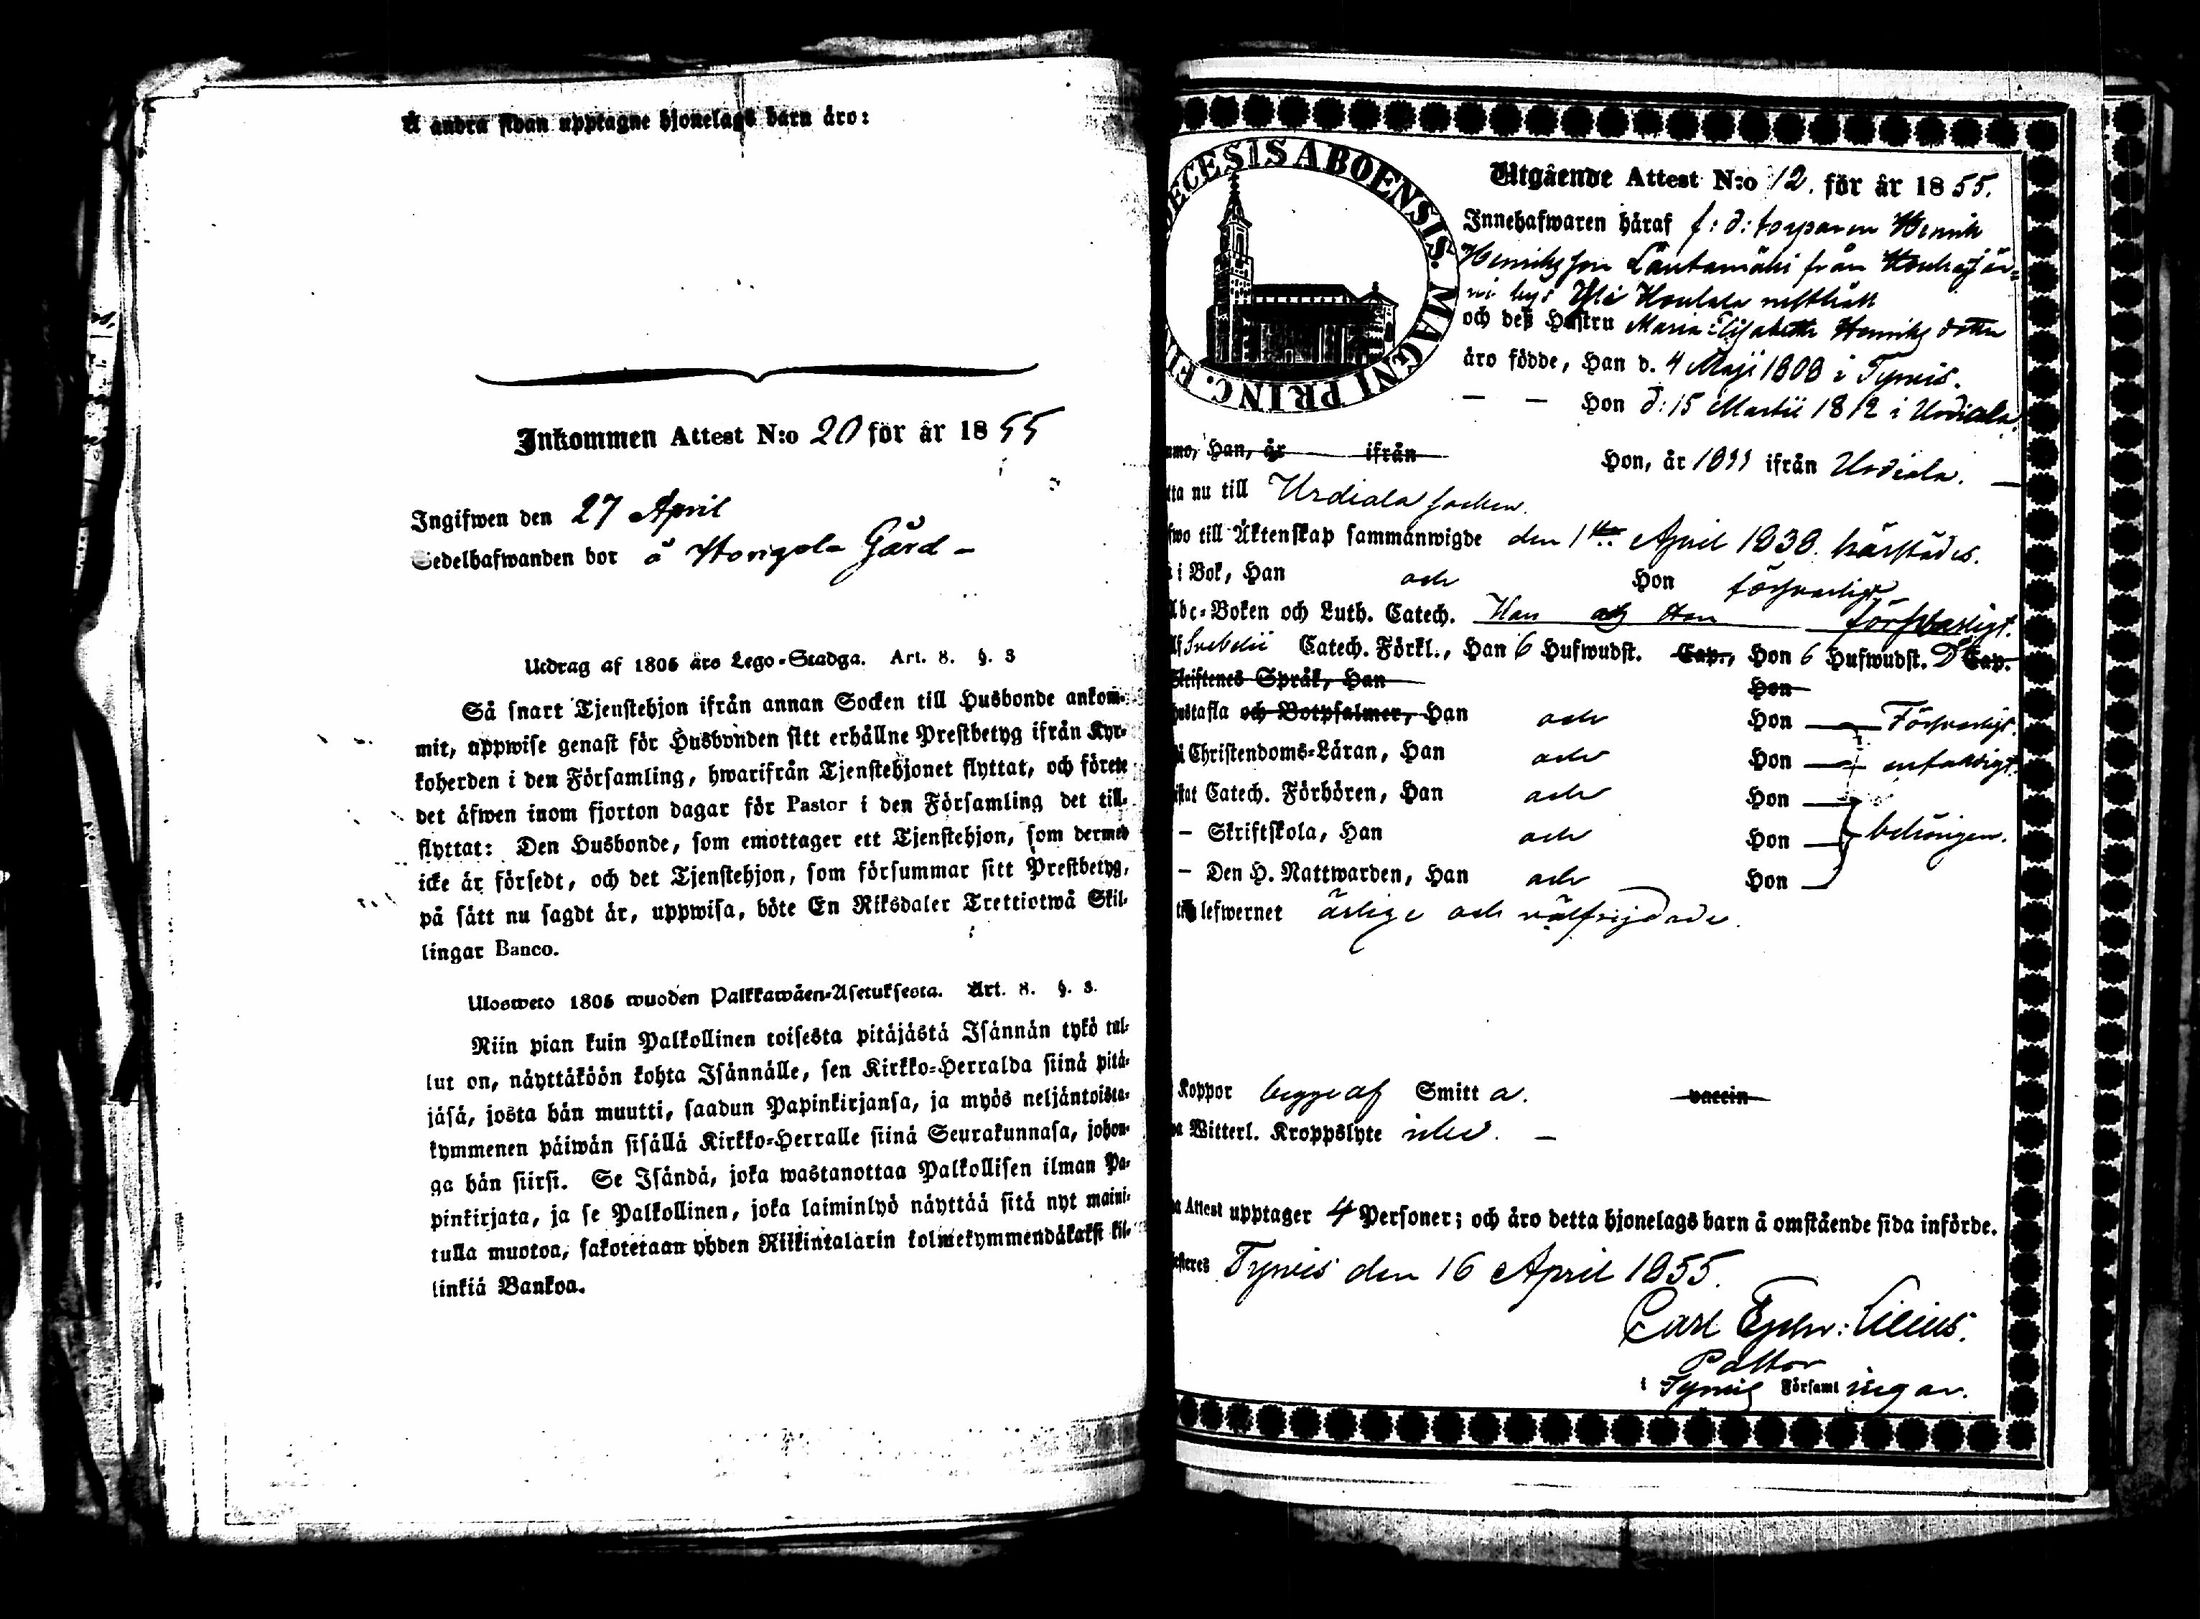 Å andra sidan upptagne hjonelags barn äro:
Inkommen Attest N:o 20 för år 1855
Ingifwen den 27 April
Sedelhafwanden bor å Gård –
Utdrag af 1805 års Lego-Stadga. Art. 8. §. 3
Så snart Tjenstehjon ifrån annan Socken till Husbonde ankom-
mit, uppwise genast för Husbonden sitt erhållne Prestbetyg ifrån Kyr-
koherden i den Församling, hwarifrån Tjenstehjonet flyttat, och förete
det äfwen inom fjorton dagar för Pastor i den Församling det till-
flyttat: Den Husbonde, som emottager ett Tjenstehjon, som dermed
icke är försedt, och det Tjenstehjon, som försummar sitt Prestbetyg,
på sätt nu sagdt är, uppwisa, böte En Riksdaler Trettiotwå Skil-
lingar Banco.
Ulosweto 1805 wuoden Palkkawäen-Asetuksesta. Art. 8. §. 3.
Niin pian kuin Palkollinen toisesta pitäjästä Isännän tykö tul-
lut on, näyttäköön kohta Isännälle, sen Kirkko-Herralda siinä pitä-
jäsä, josta hän muutti, saadun Papinkirjansa, ja myös neljäntoista-
kymmenen päiwän sisällä Kirkko-Herralle siinä Seurakunnasa, johon-
ga hän siirsi. Se Isändä, joka wastanottaa Palkollisen ilman Pa-
pinkirjata, ja se Palkollinen, joka laiminlyö näyttää sitä nyt maini-
tulla muotoa, sakotetaan yhden Riikintalarin kolmekymmendäkaksi kil-
linkiä Bankoa.
DECESIS ABOENSIS. MAGNI PRINC. FI
Utgående Attest N:o 12. för år 1855.
Innehafwaren häraf f: d: torparen Henrik
Henriksson Lautamäki från
och deß Hustru Maria Elisabeth Henriksdotter
äro födde, Han d. 4 Maji 1808 i Tyrvis.
— — Hon d: 15 Martii 1812 i Urdiala
Han, år ifrån Hon, år ifrån Urdiala. —
tta nu till Urdiala socken.
fwo till Äktenskap sammanwigde den 1 April 1838. härstädes.
i Bok, Han och Hon försvarligt
Abc-Boken och Luth. Catech. Han och Hon försvarligt.
Svebelii Catech. Förkl., Han 6 Hufwudst. Cap., Hon 6 Hufwudst. Cap.
Skriftenes Språk, Han Hon
hustafla och Botpsalmer, Han och Hon — Försvarligt.
i Christendoms-Läran, Han och Hon — enfaldigt.
istat Catech. Förhören, Han och Hon —
– Skriftskola, Han och Hon — behörigen.
– Den H. Nattwarden, Han och Hon —
till lefwernet ärlige och välfrejdade.
Koppor begge af Smitta. vaccin
Witterl. Kroppslyte —
Attest upptager 4 Personer; och äro detta hjonelags barn å omstående sida införde.
Tyrvis den 16 April 1855.
Carl Lilius.
Pastor
i Tyrvis Församlingar.